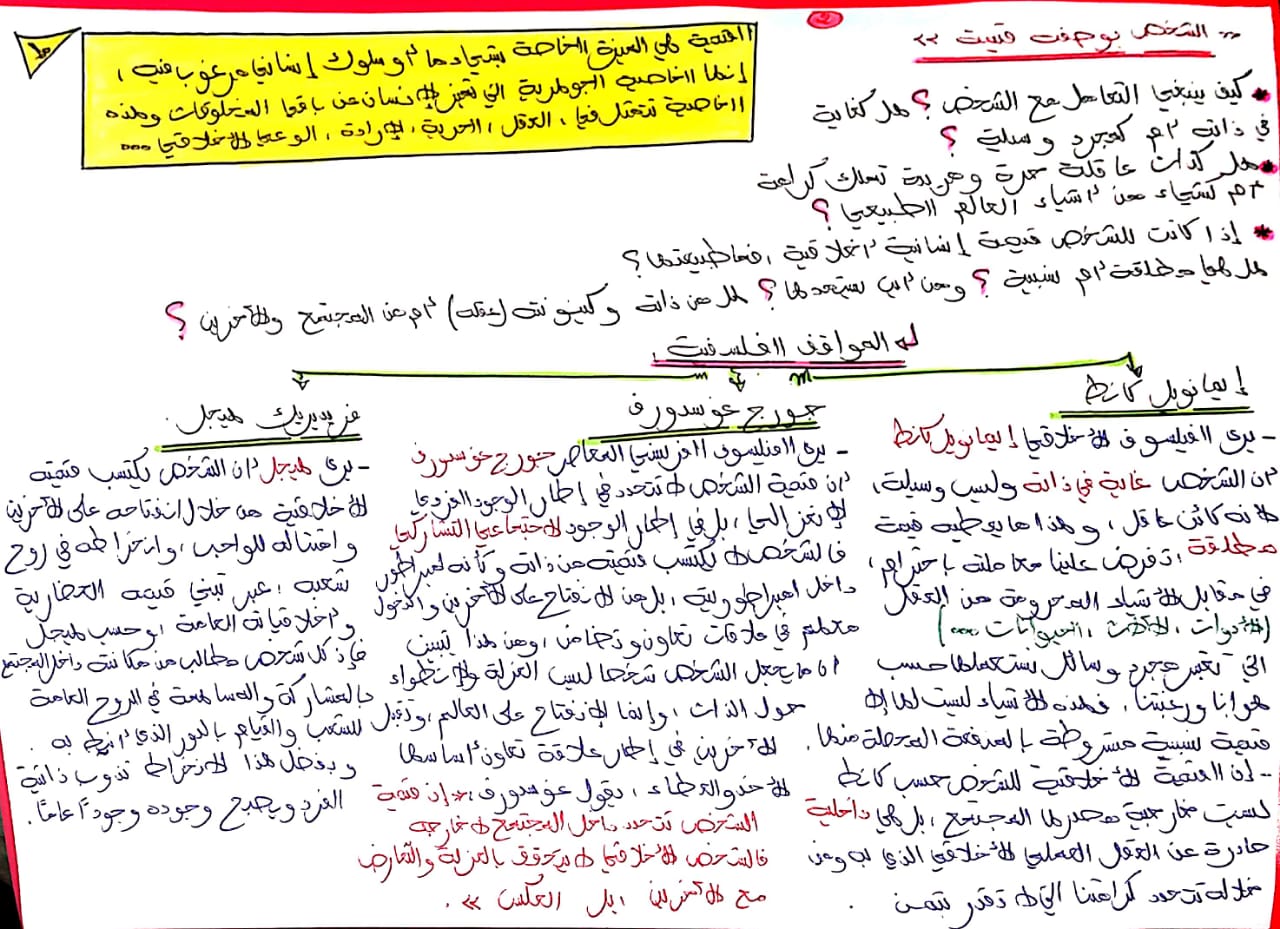 الشخص بوصفه قيمة
القيمة هي الميزة الخاصة بشيء ما أو سلوك إنساني مرغوب فيه،
إنها الخاصية الجوهرية التي تميز الإنسان عن باقي المخلوقات وهذه
الخاصية تتمثل في، العقل، الحرية، الإرادة، الوعي الأخلاقي ...
* كيف ينبغي التعامل مع الشخص؟ هل كغاية
في ذاته أم كمجرد وسيلة؟
* هل كذات عاقلة حرة ومريدة تملك كرامة
أم كشيء من أشياء العالم الطبيعي؟
* إذا كانت للشخص قيمة إنسانية أخلاقية، فما طبيعتها؟
هل هي مطلقة أم نسبية؟ ومن أين يستمدها؟ هل من ذاته وكينونته (عقله) أم من المجتمع والآخرين؟
المواقف الفلسفية،
إيمانويل كانط
- يرى الفيلسوف الأخلاقي إيمانويل كانط
أن الشخص غاية في ذاته وليس وسيلة،
لأنه كائن عاقل، وهذا ما يعطيه قيمة
مطلقة، تفرض علينا معاملته باحترام،
في مقابل الأشياء المحرومة من العقل
(الأدوات، الآلات، الحيوانات ...)
التي تعتبر مجرد وسائل نستعملها حسب
هوانا ورغبتنا، فهذه الأشياء ليست لها إلا
قيمة نسبية مشروطة بالمنفعة المحصلة منها.
- إن القيمة الأخلاقية للشخص حسب كانط
ليست خارجية مصدرها المجتمع، بل هي داخلية
صادرة عن العقل العملي الأخلاقي الذي به ومن
خلاله تتحدد كرامتنا التي لا تقدر بثمن.
جورج غوسدورف
- يرى الفيلسوف الفرنسي المعاصر جورج غوسدورف
أن قيمة الشخص لا تتحدد في إطار الوجود الفردي
الإنعزالي، بل في إطار الوجود الاجتماعي التشاركي
فالشخص لا يكتسب قيمته من ذاته وكأنه امبراطور
داخل امبراطورية، بل من الانفتاح على الآخرين والدخول
معهم في علاقات تعاون وتضامن، ومن هذا يتبين
أن ما يجعل الشخص شخصا ليس العزلة والانطواء
حول الذات، وإنما الانفتاح على العالم، وتقبل
الآخرين في إطار علاقة تعاون أساسها
الأخذ والعطاء، يقول غوسدورف، «إن قيمة
الشخص تتحدد داخل المجتمع لا خارجه
فالشخص الأخلاقي لا يتحقق بالعزلة والتعارض
مع الآخرين، بل العكس».
فريديريك هيجل.
- يرى هيجل أن الشخص يكتسب قيمته
الأخلاقية من خلال انفتاحه على الآخرين
وامتثاله للواجب، وانخراطه في روح
شعبه، عبر تبني قيمه الحضارية
وأخلاقياته العامة، وحسب هيجل
فإن كل شخص مطالب من مكانته داخل المجتمع
بالمشاركة والمساهمة في الروح العامة
للشعب والقيام بالدور الذي أنيط به.
وبفضل هذا الانخراط تذوب ذاتية
الفرد ويصبح وجوده وجودًا عامًا.